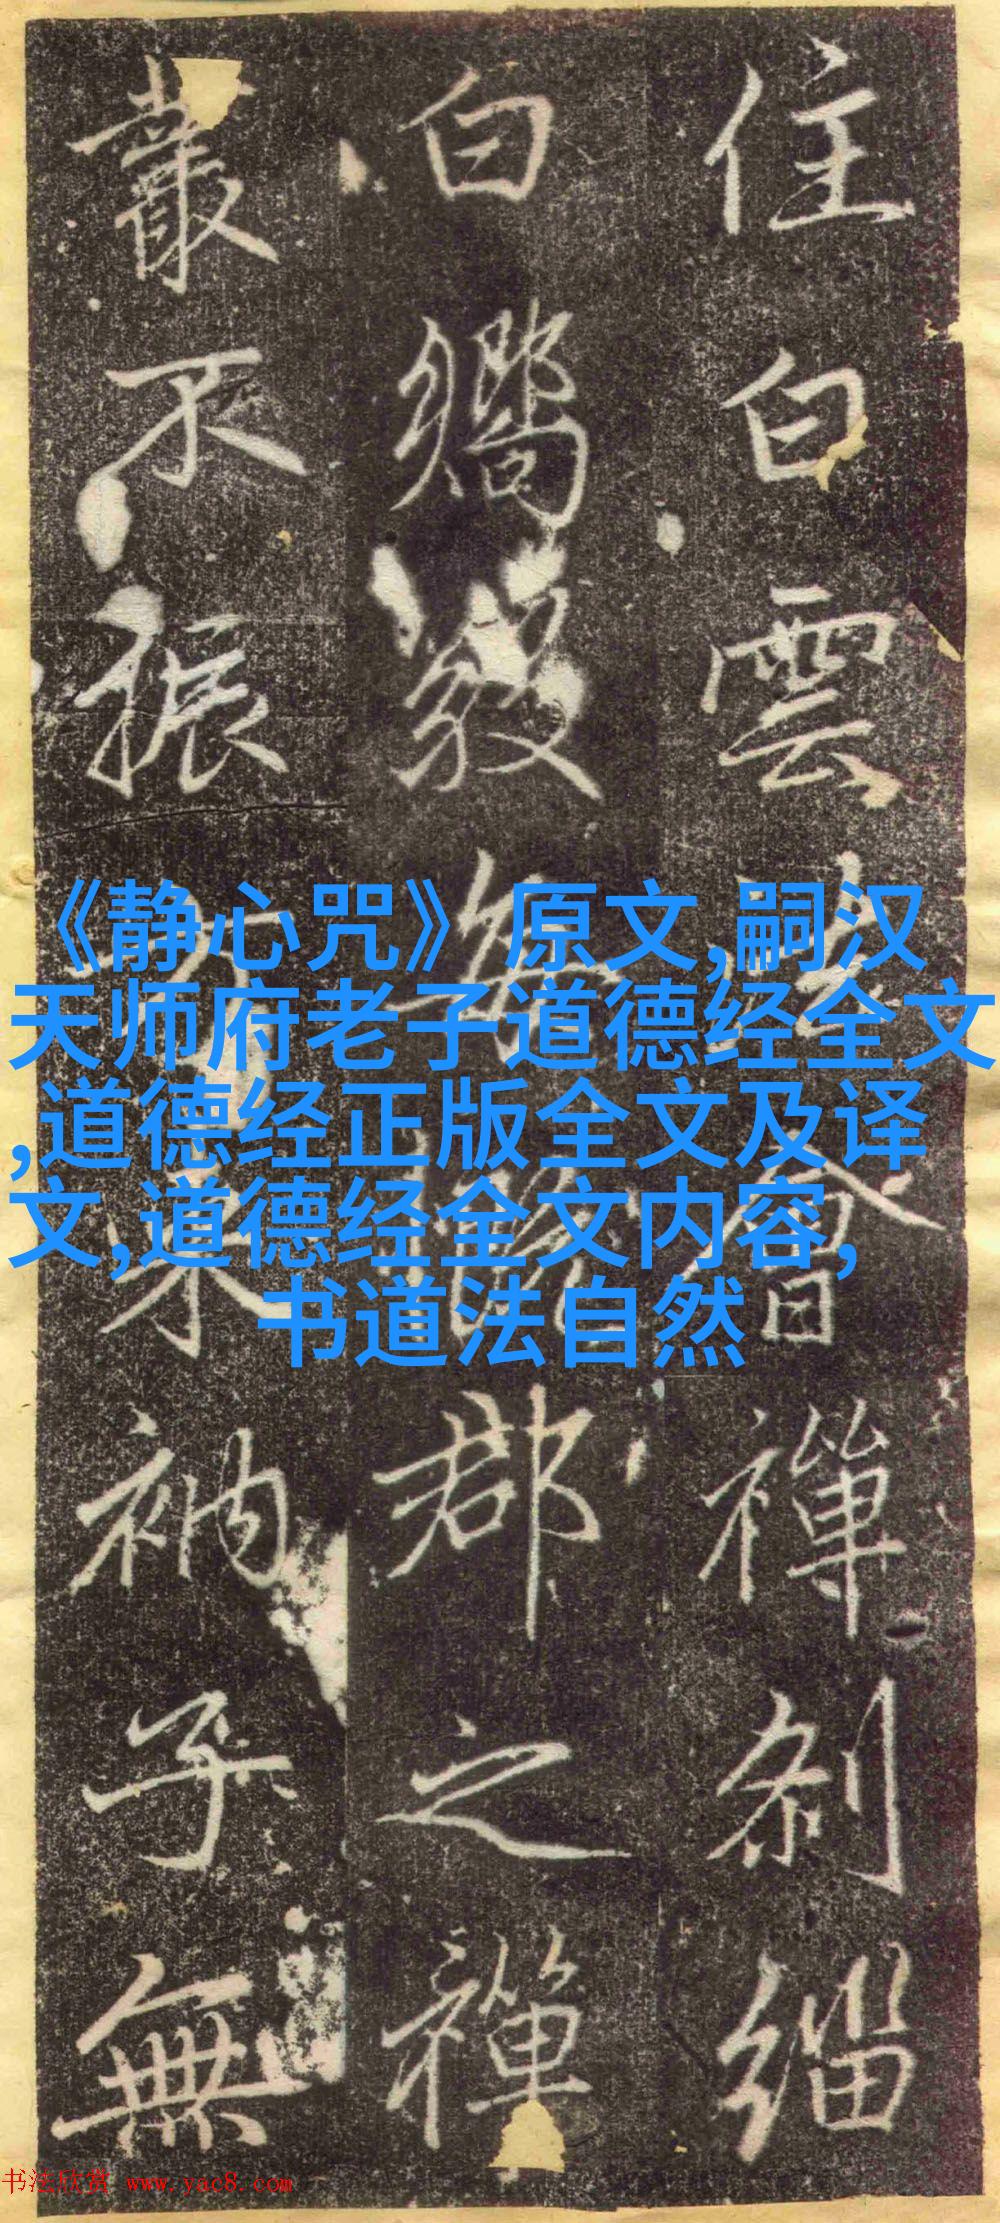 住白雲▢▢禪刹緇
白▢▢▢▢郡之禪
叢不振▢▢衲子無
《静心咒》原文,嗣汉
天师府老子道德经全文
,道德经正版全文及译
文,道德经全文内容,
书道法自然
书法欣赏 www.yac8.com